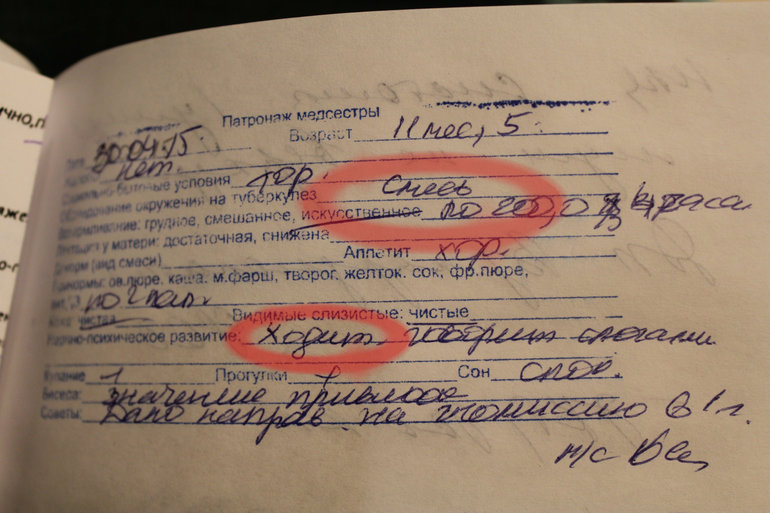 ично,п
Патронаж медсестры
Возраст 11 мес, 5.
Дата 30.04.15.
нет.
Социально-бытовые условия гор.
Обследование окружения на туберкулез смесь
Вскармливание: грудное, смешанное, искусственное по 200,0
Лактация у матери: достаточная, снижена
Докорм (вид смеси) Аппетит хор.
Прикормы: ов.пюре. каша. м.фарш, творог, желток. сок, фр.пюре,
вит.
Кожа: чистая Видимые слизистые: чистые
Нервно-психическое развитие: Ходит. говорит слогами
Купание 1 Прогулки Сон спок.
Беседа: значение прививок
Советы: Дано направ. на комиссию в 1 г.
м/с